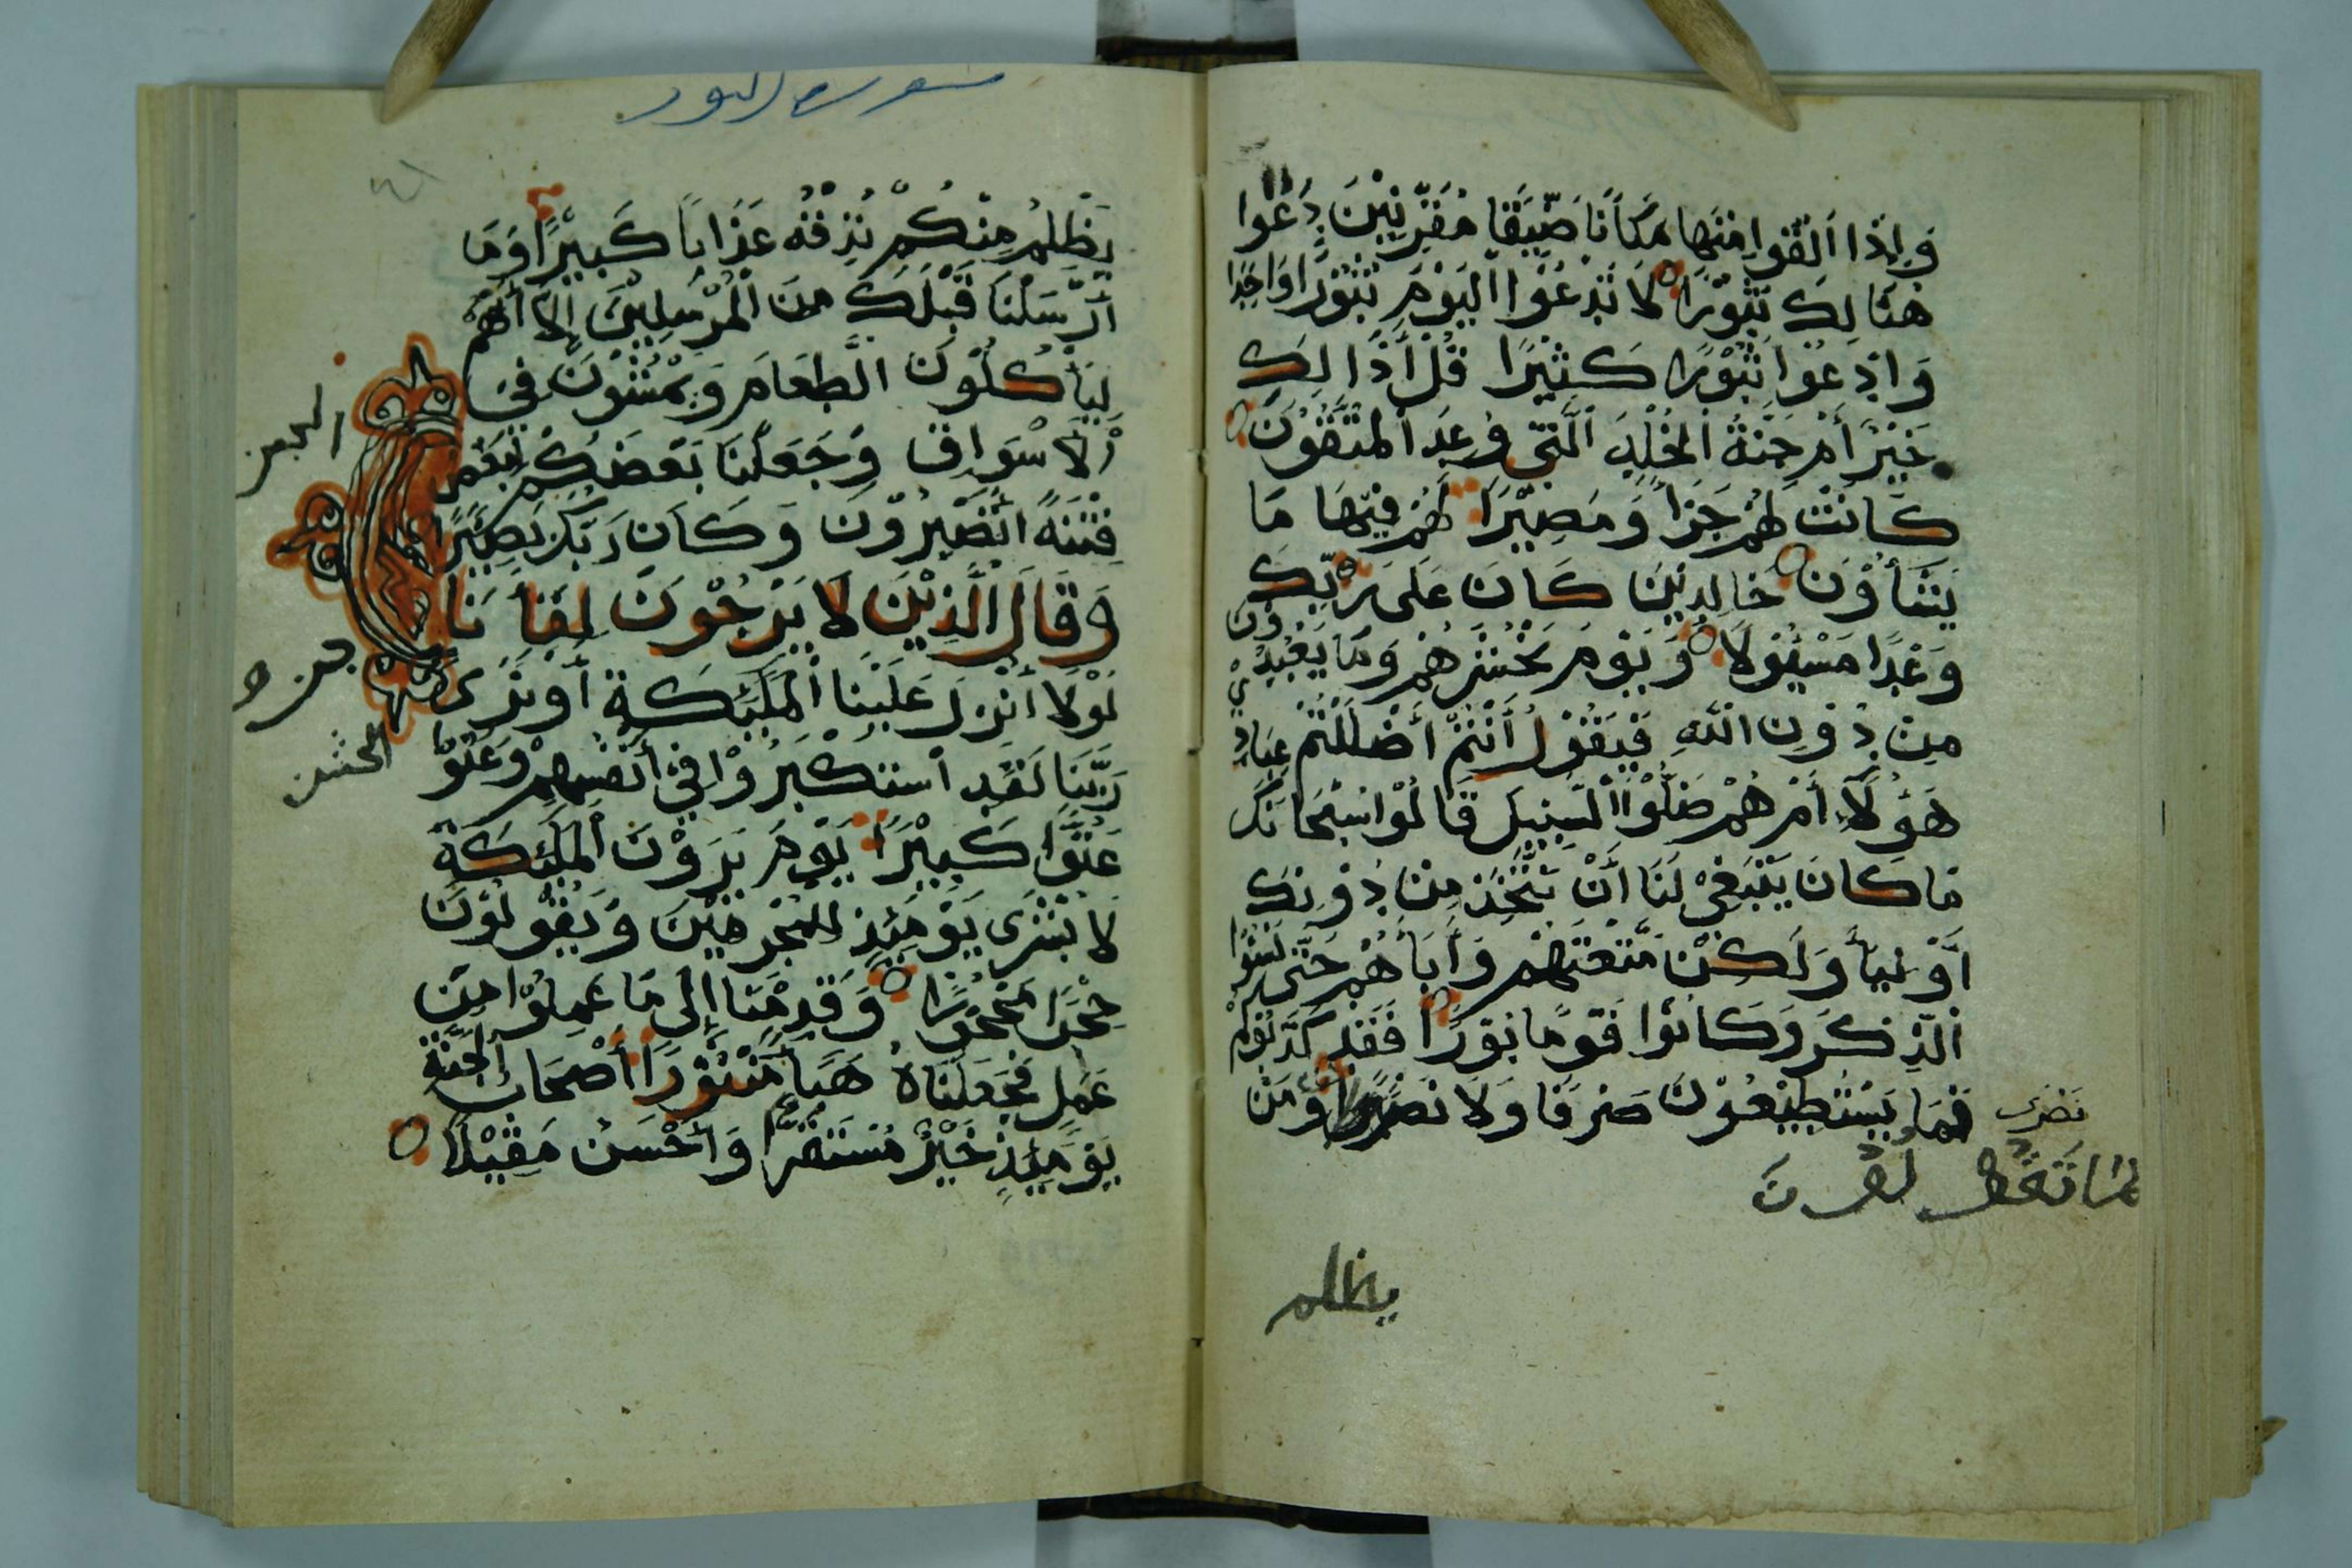 وَإِذَا أُلْقُوا مِنْهَا مَكَانًا ضَيِّقًا مُقَرَّنِيْنَ دَعَوْا
هُنَالِكَ ثُبُوْرًا لَا تَدْعُوْا الْيَوْمَ ثُبُوْرًا وَاحِدًا
وَادْعُوْا ثُبُوْرًا كَثِيْرًا قُلْ أَذَالِكَ
خَيْرٌ أَمْ جَنَّةُ الْخُلْدِ الَّتِي وُعِدَ الْمُتَّقُوْنَ
كَانَتْ لَهُمْ جَزَاً وَمَصِيْرًا لَهُمْ فِيْهَا مَا
يَشَأُوْنَ خَالِدِيْنَ كَانَ عَلَى رَبِّكَ
وَعْدًا مَسْئُوْلًا وَيَوْمَ نَحْشُرُهُمْ وَمَا يَعْبُدُوْنَ
مِنْ دُوْنِ اللهِ فَيَقُوْلُ أَنْتُمْ أَضْلَلْتُمْ عِبَادِيْ
هَؤُلَاءِ أَمْ هُمْ ضَلُّوْا السَّبِيْلَ قَالُوْا سُبْحَانَكَ
مَا كَانَ يَنْبَغِيْ لَنَا أَنْ نَتَّخِذَ مِنْ دُوْنِكَ
أَوْلِيَاْ وَلَكِنْ مَتَّعْتَهُمْ وَأَبَاْهُمْ حَتَّى نَسُوْا
الذِّكْرَ وَكَانُوْا قَوْمًا بُوْرًا فَقَدْ كَذَّبُوْكُمْ
بِمَا تَقُوْلُوْنَ
فَمَا يَسْتَطِيْعُوْنَ صَرْفًا وَلَا نَصْرًا وَمَنْ
يظلم
سورة النور
يَظْلِمْ مِنْكُمْ نُذِقْهُ عَذَابًا كَبِيْرًا وَمَا
أَرْسَلْنَا قَبْلَكَ مِنَ الْمُرْسَلِيْنَ إِلَّا أَنَّهُمْ
لَيَأْكُلُوْنَ الطَّعَامَ وَيَمْشُوْنَ فِيْ
الْأَسْوَاقِ وَجَعَلْنَا بَعْضَكُمْ لِبَعْضٍ
فِتْنَةً أَتَصْبِرُوْنَ وَكَانَ رَبُّكَ بَصِيْرًا
وَقَالَ الَّذِيْنَ لَا يَرْجُوْنَ لِقَاْنَا
لَوْلَا أُنْزِلَ عَلَيْنَا الْمَلَئِكَةُ أَوْ نَرَى
رَبَّنَا لَقَدِ اسْتَكْبَرُوْا فِيْ أَنْفُسِهِمْ وَعَتَوْا
عُتُوًّا كَبِيْرًا يَوْمَ يَرَوْنَ الْمَلَئِكَةَ
لَا بُشْرَى يَوْمَئِذٍ لِلْمُجْرِمِيْنَ وَيَقُوْلُوْنَ
حِجْرًا مَحْجُوْرًا وَقَدِمْنَا إِلَى مَا عَمِلُوْا مِنْ
عَمَلٍ فَجَعَلْنَاهُ هَبَاً مَنْثُوْرًا أَصْحَابُ الْجَنَّةِ
يَوْمَئِذٍ خَيْرٌ مُسْتَقَرًّا وَأَحْسَنُ مَقِيْلًا